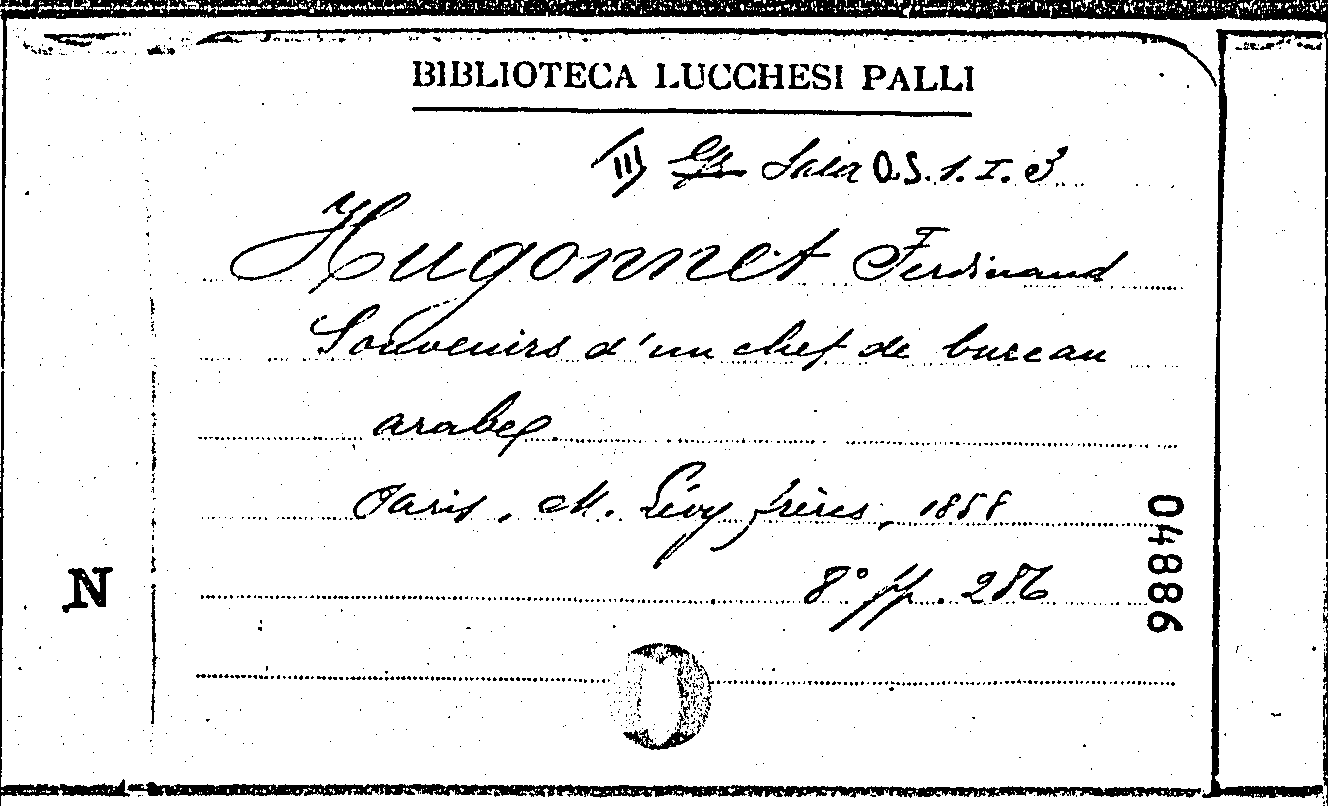 BIBLIOTECA LUCCHESI PALLI
III Sala O.S. 1. I. 3
Hugonnet Ferdinand
Souvenirs d'un chef de bureau
arabe
Paris, M. Lévy frères, 1858
8° pp. 286
04886
N